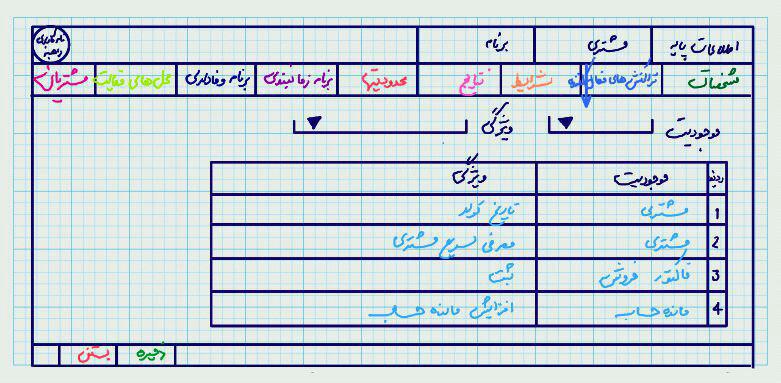 اطلاعات پایه مشتری برنامه نام کاربری
مشخصات تراکنش های فعال کننده شرایط نتایج محدودیتها برنامه زمانبندی برنامه وفاداری محل های فعالیت مشتریان
موجودیت ویژگی
ردیف موجودیت ویژگی
1 مشتری تاریخ تولد
2 مشتری معرفی مشتری
3 فاکتور فروش ثبت
4 مانده حساب افزایش مانده حساب
ذخیره بستن